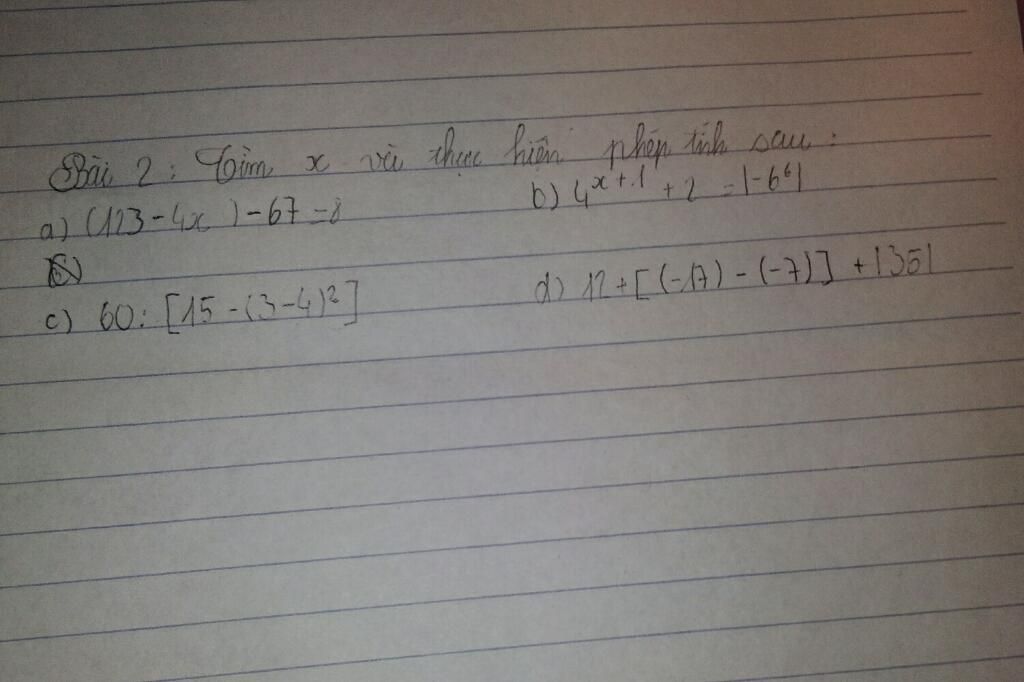 Bài 2: Tìm x và thực hiện phép tính sau:
a) (123 - 4x) - 67 = 8 b) 4^x+1 + 2 = |-66|
c) 60: [15 - (3-4)²] d) 12 + [(-17) - (-7)] + |35|